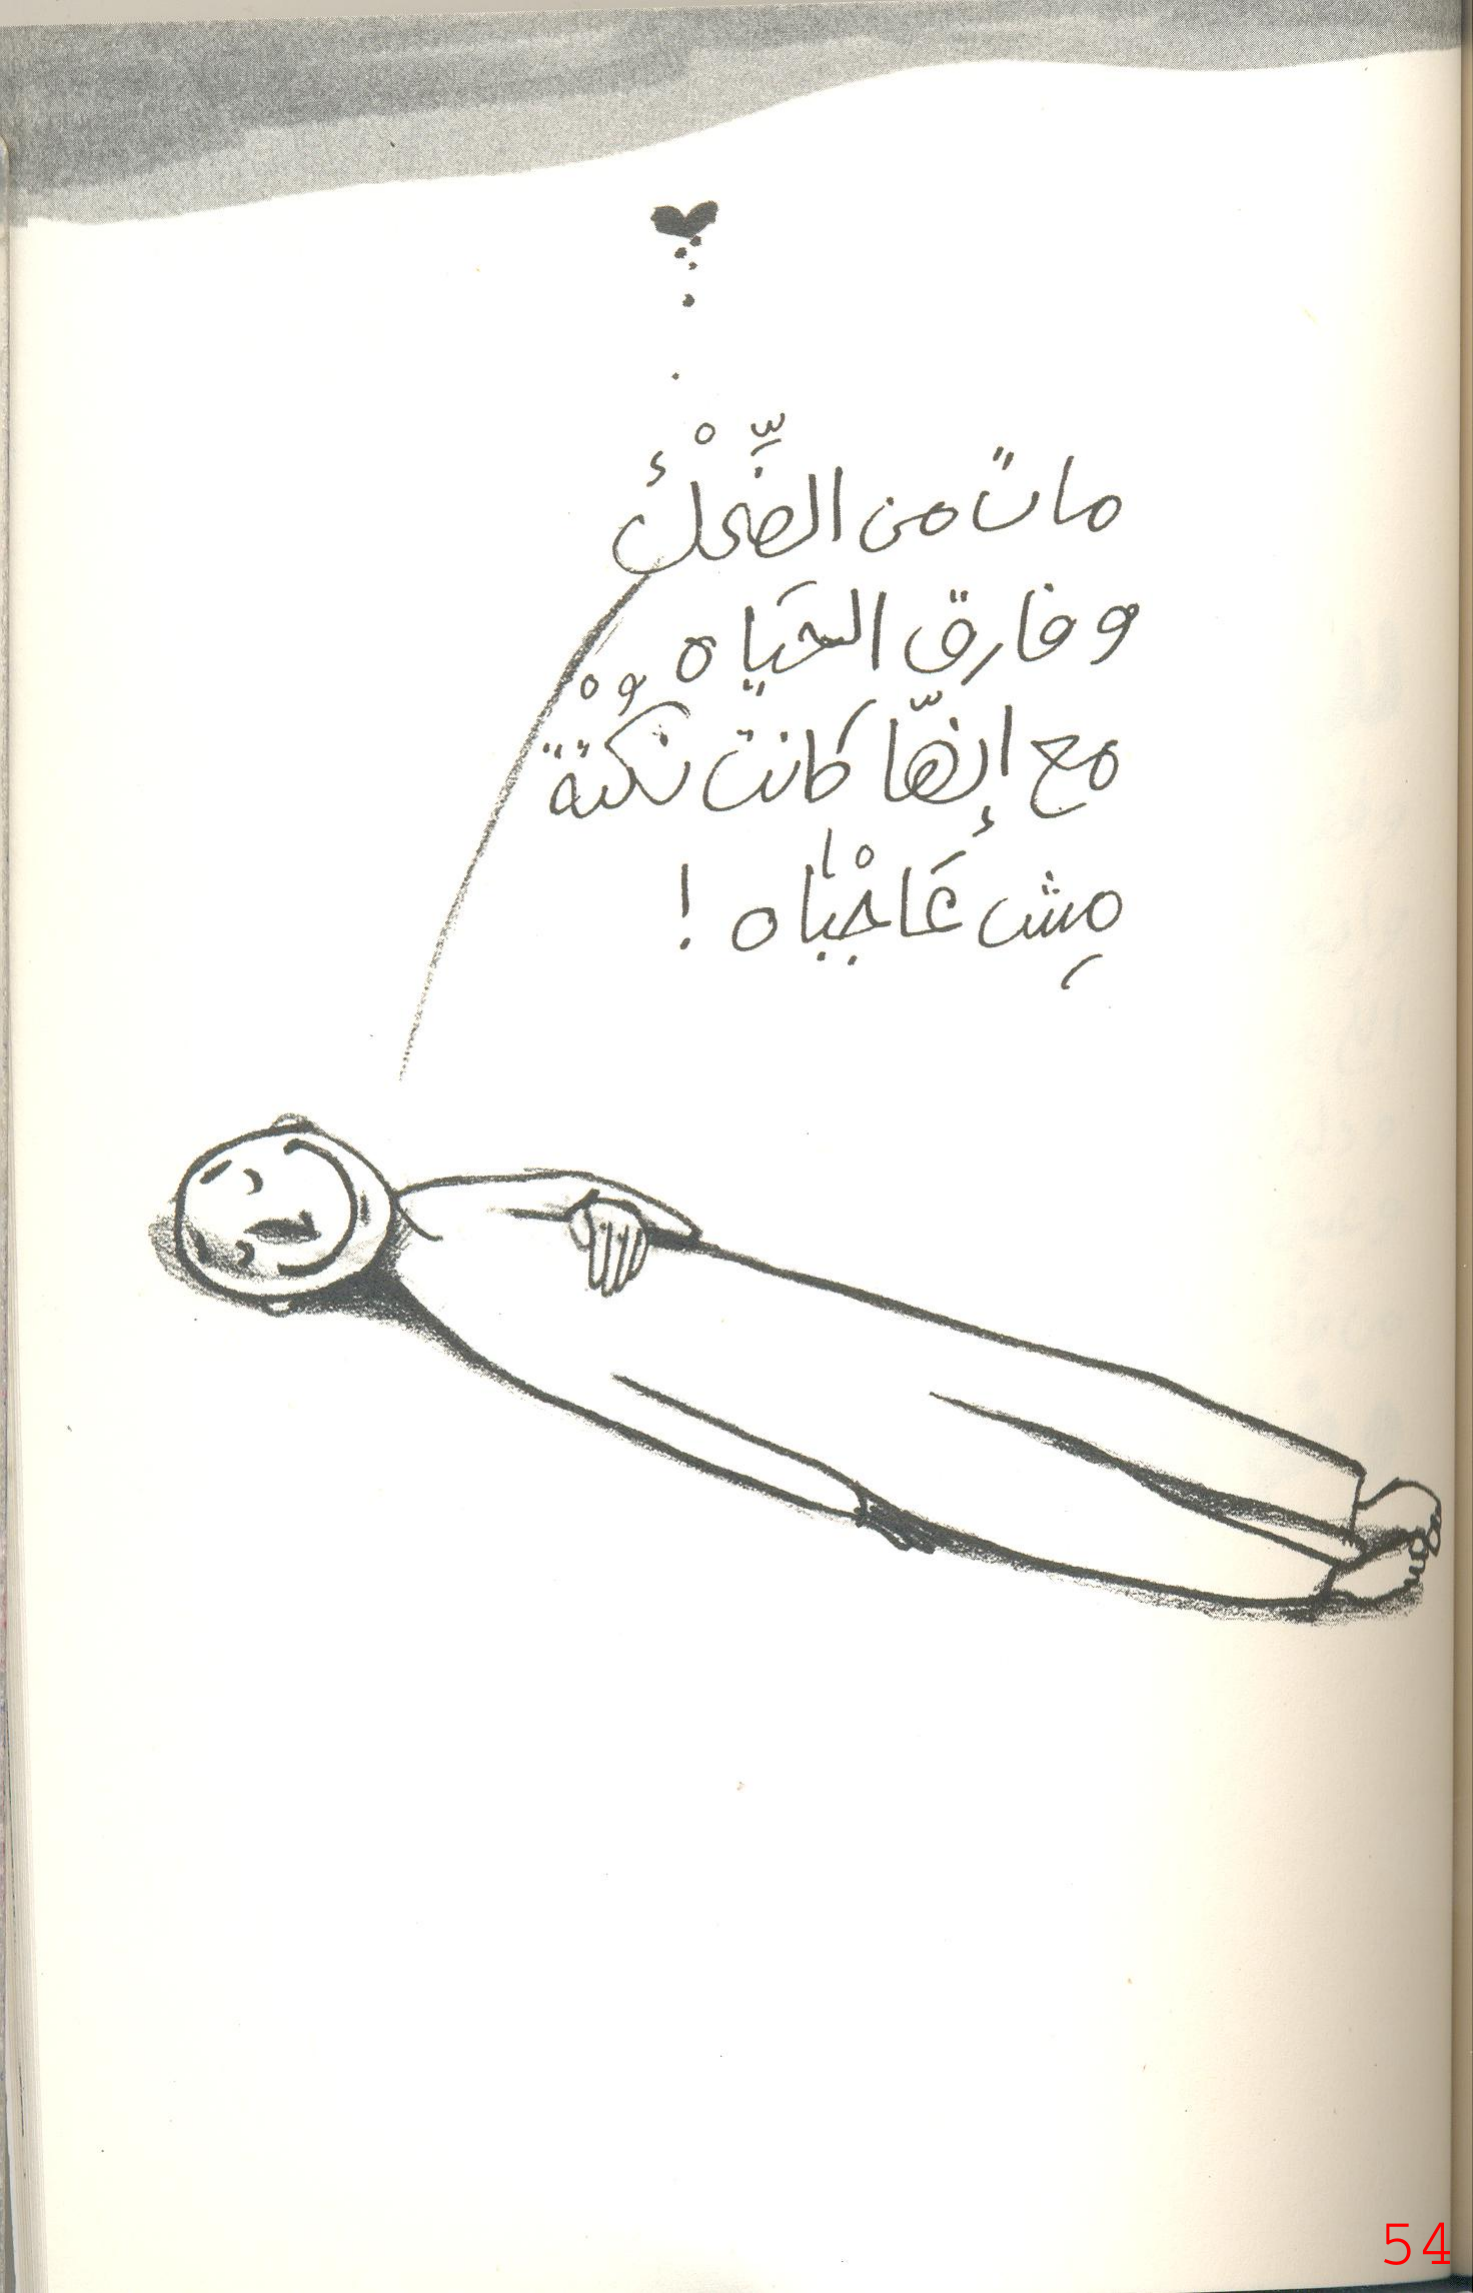 مات من الضِّحْك
وفارق الحَياه
مع إنّها كانت نُكْتة
مِش عَاجْباه !
54